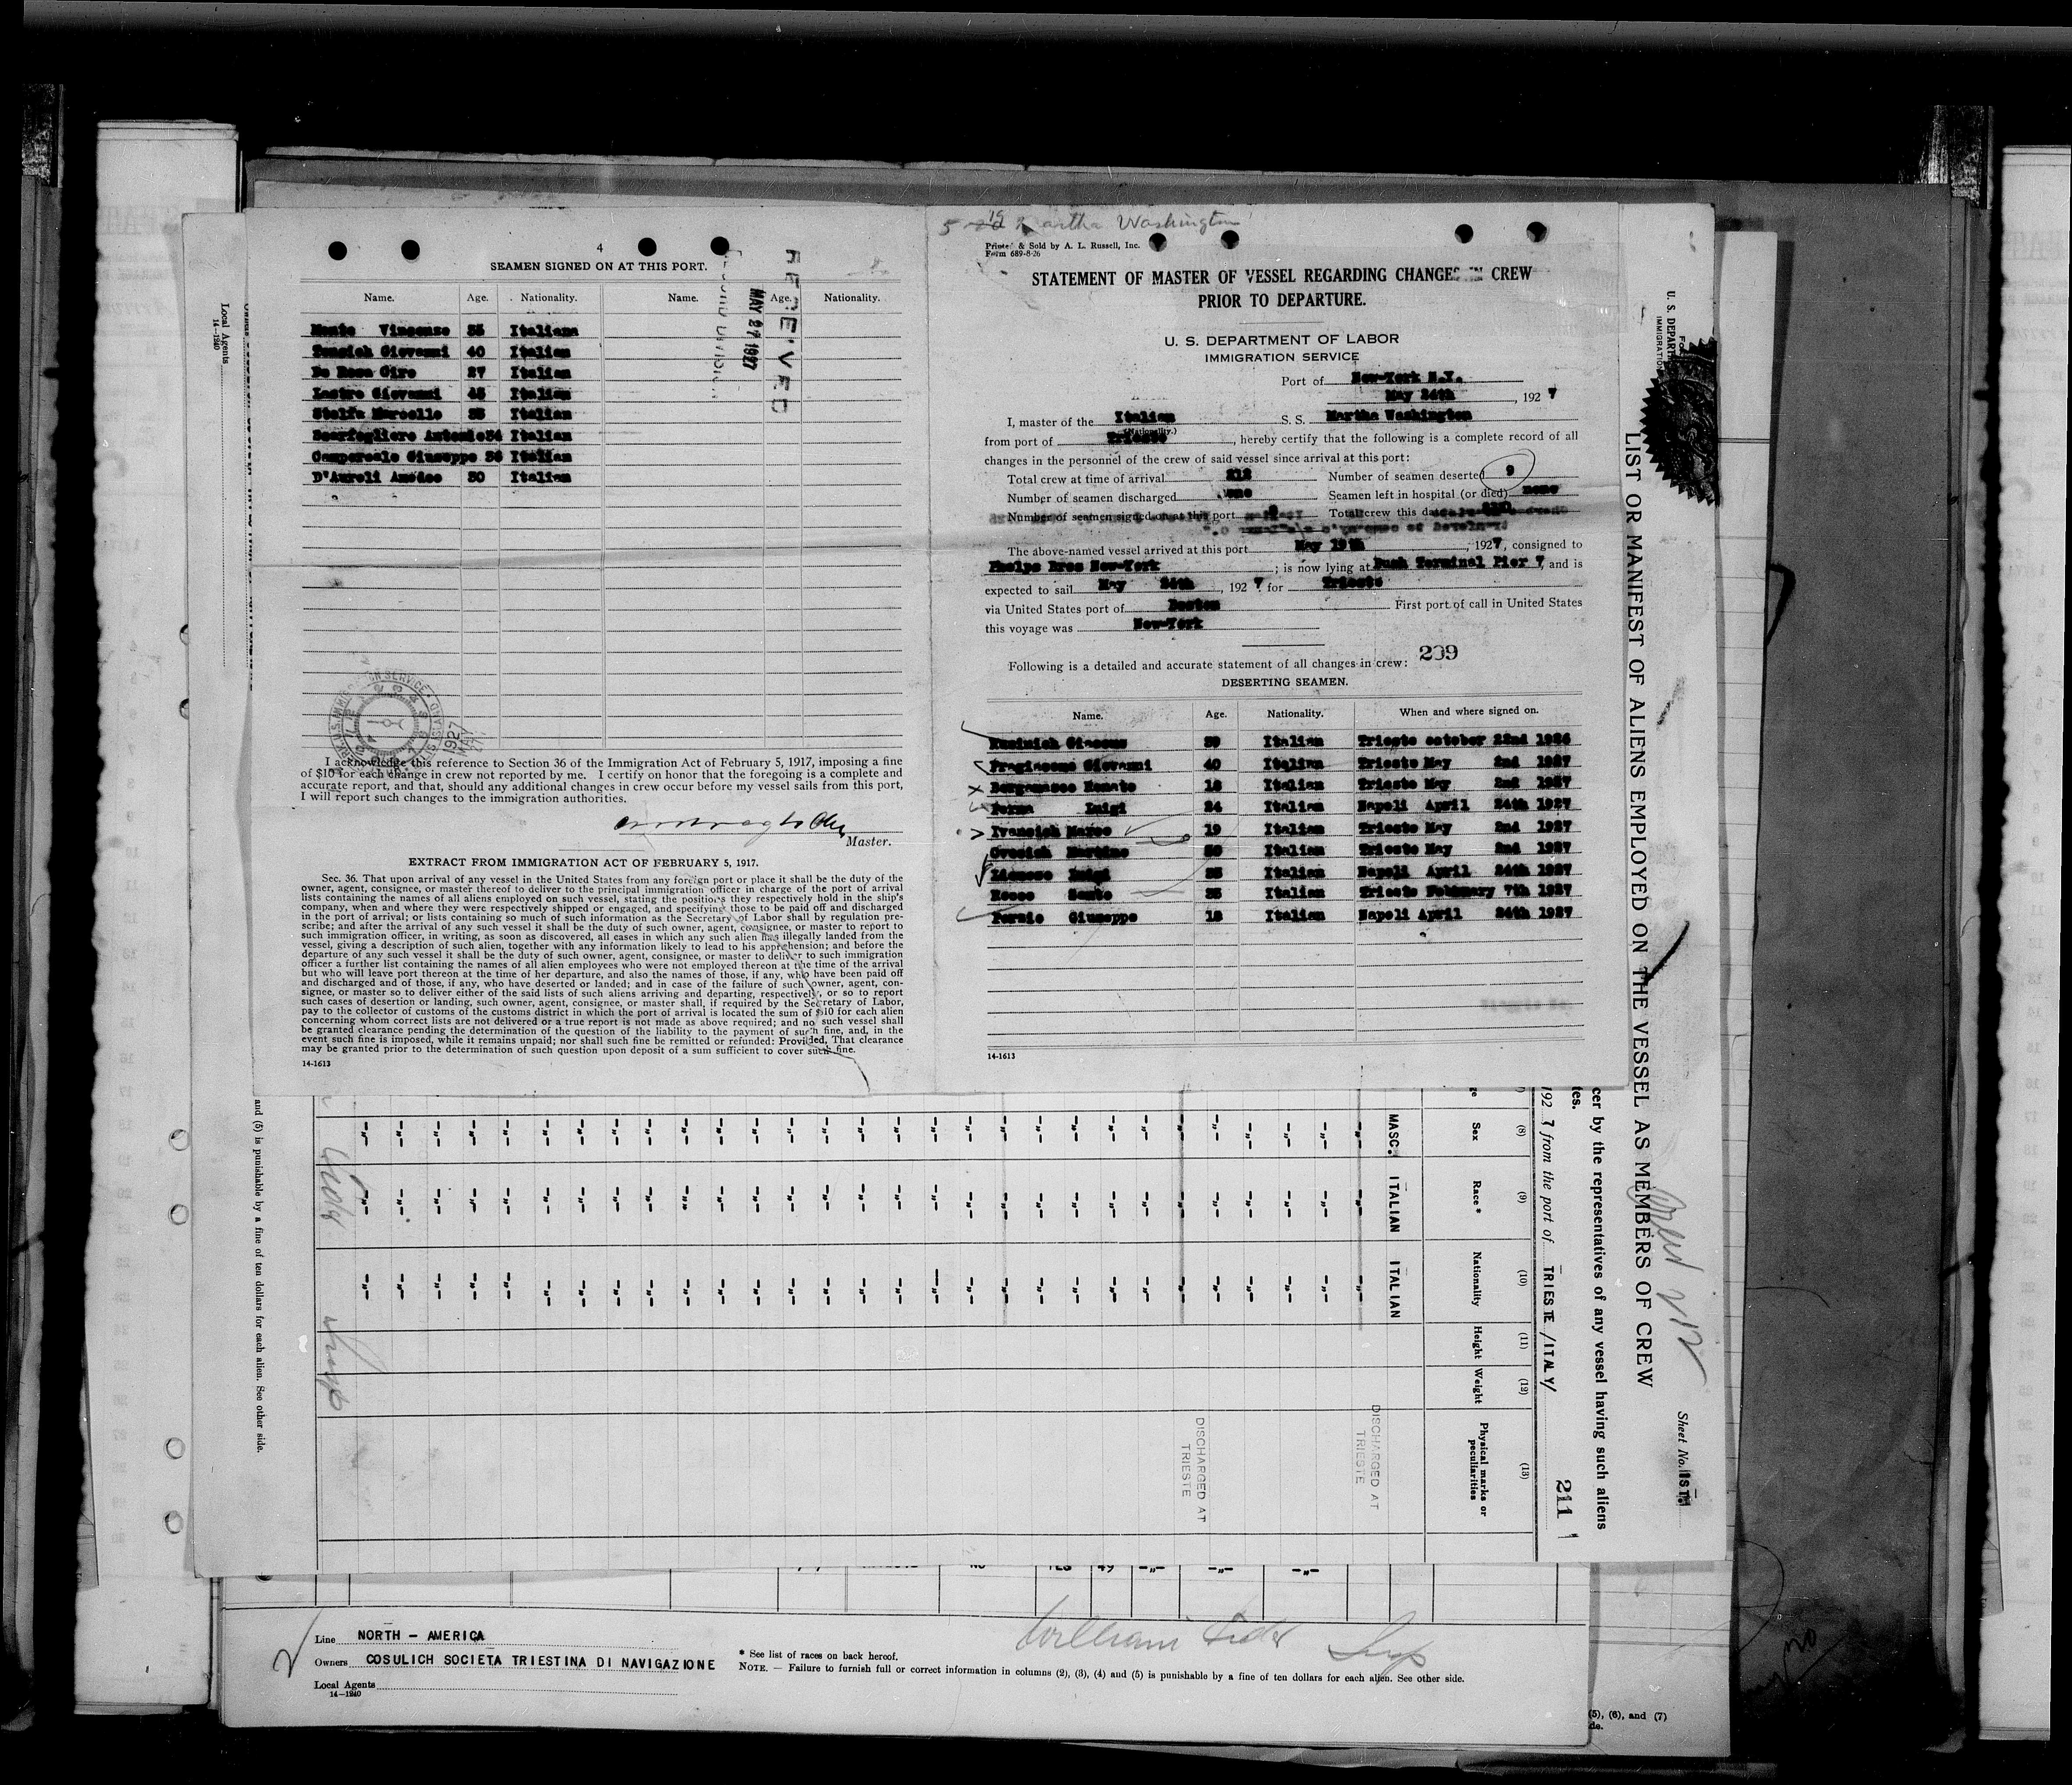 4
SEAMEN SIGNED ON AT THIS PORT.
Name. Age. Nationality. Name. Age. Nationality.
Vincenzo 35 Italiana
Giovanni 40 Italian
De Rosa Ciro 27 Italian
Giovanni 45 Italian
Stolfa Marcello 35 Italian
Scarfogliero Antonio 34 Italian
Camporeale Giuseppe 36 Italian
D'Aureli Amedeo 30 Italian
RECEIVED
MAY 27 1927
I acknowledge this reference to Section 36 of the Immigration Act of February 5, 1917, imposing a fine
of $10 for each change in crew not reported by me. I certify on honor that the foregoing is a complete and
accurate report, and that, should any additional changes in crew occur before my vessel sails from this port,
I will report such changes to the immigration authorities.
Master.
EXTRACT FROM IMMIGRATION ACT OF FEBRUARY 5, 1917.
Sec. 36. That upon arrival of any vessel in the United States from any foreign port or place it shall be the duty of the
owner, agent, consignee, or master thereof to deliver to the principal immigration officer in charge of the port of arrival
lists containing the names of all aliens employed on such vessel, stating the positions they respectively hold in the ship's
company, when and where they were respectively shipped or engaged, and specifying those to be paid off and discharged
in the port of arrival; or lists containing so much of such information as the Secretary of Labor shall by regulation pre-
scribe; and after the arrival of any such vessel it shall be the duty of such owner, agent, consignee, or master to report to
such immigration officer, in writing, as soon as discovered, all cases in which any such alien has illegally landed from the
vessel, giving a description of such alien, together with any information likely to lead to his apprehension; and before the
departure of any such vessel it shall be the duty of such owner, agent, consignee, or master to deliver to such immigration
officer a further list containing the names of all alien employees who were not employed thereon at the time of the arrival
but who will leave port thereon at the time of her departure, and also the names of those, if any, who have been paid off
and discharged and of those, if any, who have deserted or landed; and in case of the failure of such owner, agent, con-
signee, or master so to deliver either of the said lists of such aliens arriving and departing, respectively, or so to report
such cases of desertion or landing, such owner, agent, consignee, or master shall, if required by the Secretary of Labor,
pay to the collector of customs of the customs district in which the port of arrival is located the sum of $10 for each alien
concerning whom correct lists are not delivered or a true report is not made as above required; and no such vessel shall
be granted clearance pending the determination of the question of the liability to the payment of such fine, and, in the
event such fine is imposed, while it remains unpaid; nor shall such fine be remitted or refunded: Provided, That clearance
may be granted prior to the determination of such question upon deposit of a sum sufficient to cover such fine.
14-1613
Martha Washington
Printed & Sold by A. L. Russell, Inc.
Form 689-8-26
STATEMENT OF MASTER OF VESSEL REGARDING CHANGES IN CREW
PRIOR TO DEPARTURE.
U. S. DEPARTMENT OF LABOR
IMMIGRATION SERVICE
Port of New-York N.Y.
May 24th, 1927
I, master of the Italian S. S. Martha Washington
(Nationality.)
from port of Trieste, hereby certify that the following is a complete record of all
changes in the personnel of the crew of said vessel since arrival at this port:
Total crew at time of arrival 212 Number of seamen deserted 9
Number of seamen discharged none Seamen left in hospital (or died) none
Number of seamen signed on at this port 8 Total crew this date
The above-named vessel arrived at this port May 19th, 1927, consigned to
Phelps Bros New-York; is now lying at Bush Terminal Pier 7, and is
expected to sail May 24th, 1927 for Trieste
via United States port of Boston First port of call in United States
this voyage was New-York
209
Following is a detailed and accurate statement of all changes in crew:
DESERTING SEAMEN.
Name. Age. Nationality. When and where signed on.
Giacomo 39 Italian Trieste october 22nd 1926
Fragiacomo Giovanni 40 Italian Trieste May 2nd 1927
Bergamasco Renato 18 Italian Trieste May 2nd 1927
Luigi 24 Italian Napoli April 24th 1927
Ivancich Marco 19 Italian Trieste May 2nd 1927
Martino Italian Trieste May 2nd 1927
Luigi 35 Italian Napoli April 24th 1927
Sante 35 Italian Trieste February 7th 1927
Giuseppe 18 Italian Napoli April 24th 1927
14-1613
LIST OR MANIFEST OF ALIENS EMPLOYED ON THE VESSEL AS MEMBERS OF CREW
Sheet No. 1ST.
cer by the representatives of any vessel having such aliens
tes.
1927 from the port of TRIESTE /ITALY/
211
(8) Sex
(9) Race *
(10) Nationality
(11) Height
(12) Weight
(13) Physical marks or peculiarities
MASC. ITALIAN ITALIAN
DISCHARGED AT
TRIESTE
DISCHARGED AT
TRIESTE
and (5) is punishable by a fine of ten dollars for each alien. See other side.
Local Agents
14-1240
Line NORTH - AMERICA
Owners COSULICH SOCIETA TRIESTINA DI NAVIGAZIONE
Local Agents
14-1240
* See list of races on back hereof.
NOTE. — Failure to furnish full or correct information in columns (2), (3), (4) and (5) is punishable by a fine of ten dollars for each alien. See other side.
William
(5), (6), and (7)
de.